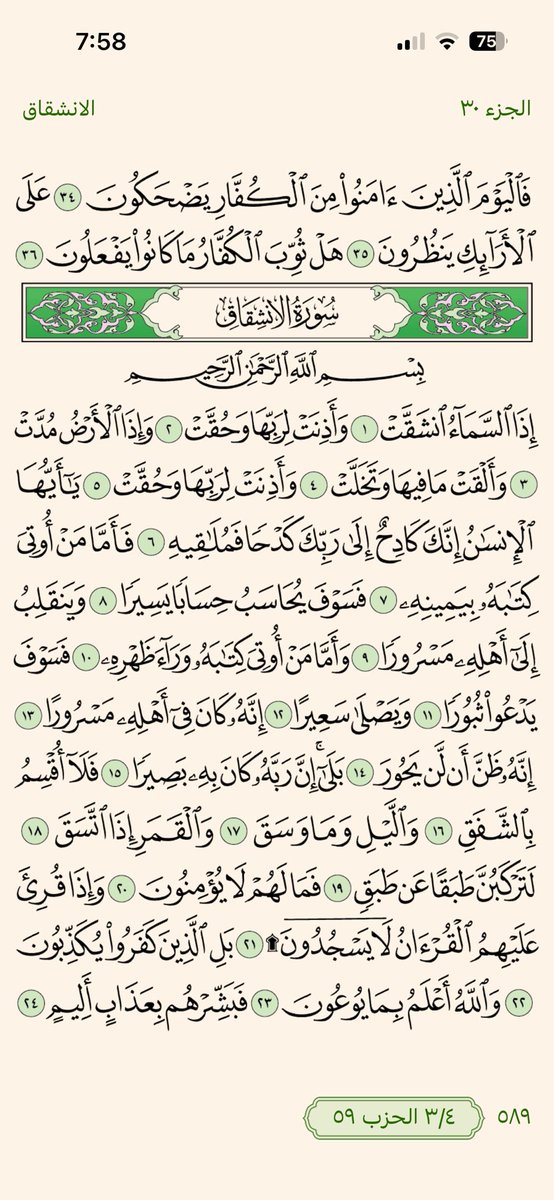 7:58
75
الجزء ٣٠
الانشقاق
فَٱلْيَوْمَ ٱلَّذِينَ ءَامَنُوا۟ مِنَ ٱلْكُفَّارِ يَضْحَكُونَ ٣٤ عَلَى
ٱلْأَرَآئِكِ يَنظُرُونَ ٣٥ هَلْ ثُوِّبَ ٱلْكُفَّارُ مَا كَانُوا۟ يَفْعَلُونَ ٣٦
سُورَةُ الانشِقَاقِ
بِسْمِ ٱللَّهِ ٱلرَّحْمَٰنِ ٱلرَّحِيمِ
إِذَا ٱلسَّمَآءُ ٱنشَقَّتْ ١ وَأَذِنَتْ لِرَبِّهَا وَحُقَّتْ ٢ وَإِذَا ٱلْأَرْضُ مُدَّتْ
٣ وَأَلْقَتْ مَا فِيهَا وَتَخَلَّتْ ٤ وَأَذِنَتْ لِرَبِّهَا وَحُقَّتْ ٥ يَٰٓأَيُّهَا
ٱلْإِنسَٰنُ إِنَّكَ كَادِحٌ إِلَىٰ رَبِّكَ كَدْحًا فَمُلَٰقِيهِ ٦ فَأَمَّا مَنْ أُوتِىَ
كِتَٰبَهُۥ بِيَمِينِهِۦ ٧ فَسَوْفَ يُحَاسَبُ حِسَابًا يَسِيرًا ٨ وَيَنقَلِبُ
إِلَىٰٓ أَهْلِهِۦ مَسْرُورًا ٩ وَأَمَّا مَنْ أُوتِىَ كِتَٰبَهُۥ وَرَآءَ ظَهْرِهِۦ ١٠ فَسَوْفَ
يَدْعُوا۟ ثُبُورًا ١١ وَيَصْلَىٰ سَعِيرًا ١٢ إِنَّهُۥ كَانَ فِىٓ أَهْلِهِۦ مَسْرُورًا ١٣
إِنَّهُۥ ظَنَّ أَن لَّن يَحُورَ ١٤ بَلَىٰٓۚ إِنَّ رَبَّهُۥ كَانَ بِهِۦ بَصِيرًا ١٥ فَلَآ أُقْسِمُ
بِٱلشَّفَقِ ١٦ وَٱلَّيْلِ وَمَا وَسَقَ ١٧ وَٱلْقَمَرِ إِذَا ٱتَّسَقَ ١٨
لَتَرْكَبُنَّ طَبَقًا عَن طَبَقٍ ١٩ فَمَا لَهُمْ لَا يُؤْمِنُونَ ٢٠ وَإِذَا قُرِئَ
عَلَيْهِمُ ٱلْقُرْءَانُ لَا يَسْجُدُونَ ۩ ٢١ بَلِ ٱلَّذِينَ كَفَرُوا۟ يُكَذِّبُونَ
٢٢ وَٱللَّهُ أَعْلَمُ بِمَا يُوعُونَ ٢٣ فَبَشِّرْهُم بِعَذَابٍ أَلِيمٍ ٢٤
٥٨٩
٣/٤ الحزب ٥٩